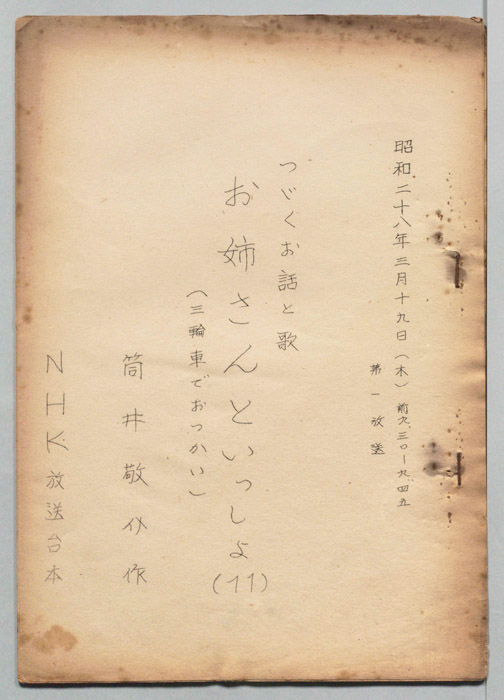 昭和二十八年三月十九日(木)前九.三〇―九.四五
第一放送
つづくお話と歌
お姉さんといっしょ(11)
(三輪車でおつかい)
筒井敬介作
NHK放送台本